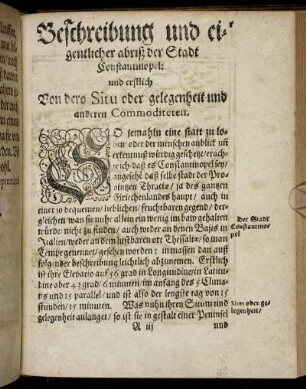 Beschreibung und ei-
gentlicher abriß der Stadt
Constantinopel:
und erstlich
Von dero Situ oder gelegenheit und
anderen Commoditeten.
SO jemahln eine statt zu lo-
ben oder der menschen anblick uñ
erkentnuß würdig geschetzt; erach
reich daß es Constantinopel sey/
angesehē daß selbe stadt der Pro-
vintzen Thraciæ/ ja des gantzen
Griechenlandes haupt/ auch in
einer so bequemen/ lieblichen/ fruchtbaren gegend/ der-
gleichen man sie nuhr allein ein wenig im bau gehalten
würde/ nicht zu finden/ auch weder an denen Bajis in
Italien/ weder an dem lustbaren ort Thessaliæ/ so man
Tempe genennet/ gesehen worden: inmassen dan auß
folgender beschreibung leichtlich abzunemen. Erstlich
ist ihre Elevatio auf 56 grad in Longitudine/ in Latitu-
dine aber 43 grad/ 6 minuten/ im anfang des 5 Clima-
tis und 15 parallel/ und ist also der lengste tag von 15
stunden/ 15 minuten. Was nuhn ihren Situm und
gelegenheit anlanget/ so ist sie in gestalt einer Peninsel
A iij und
Der Stadt
Constantino-
pel
Situs oder ge-
legenheit/